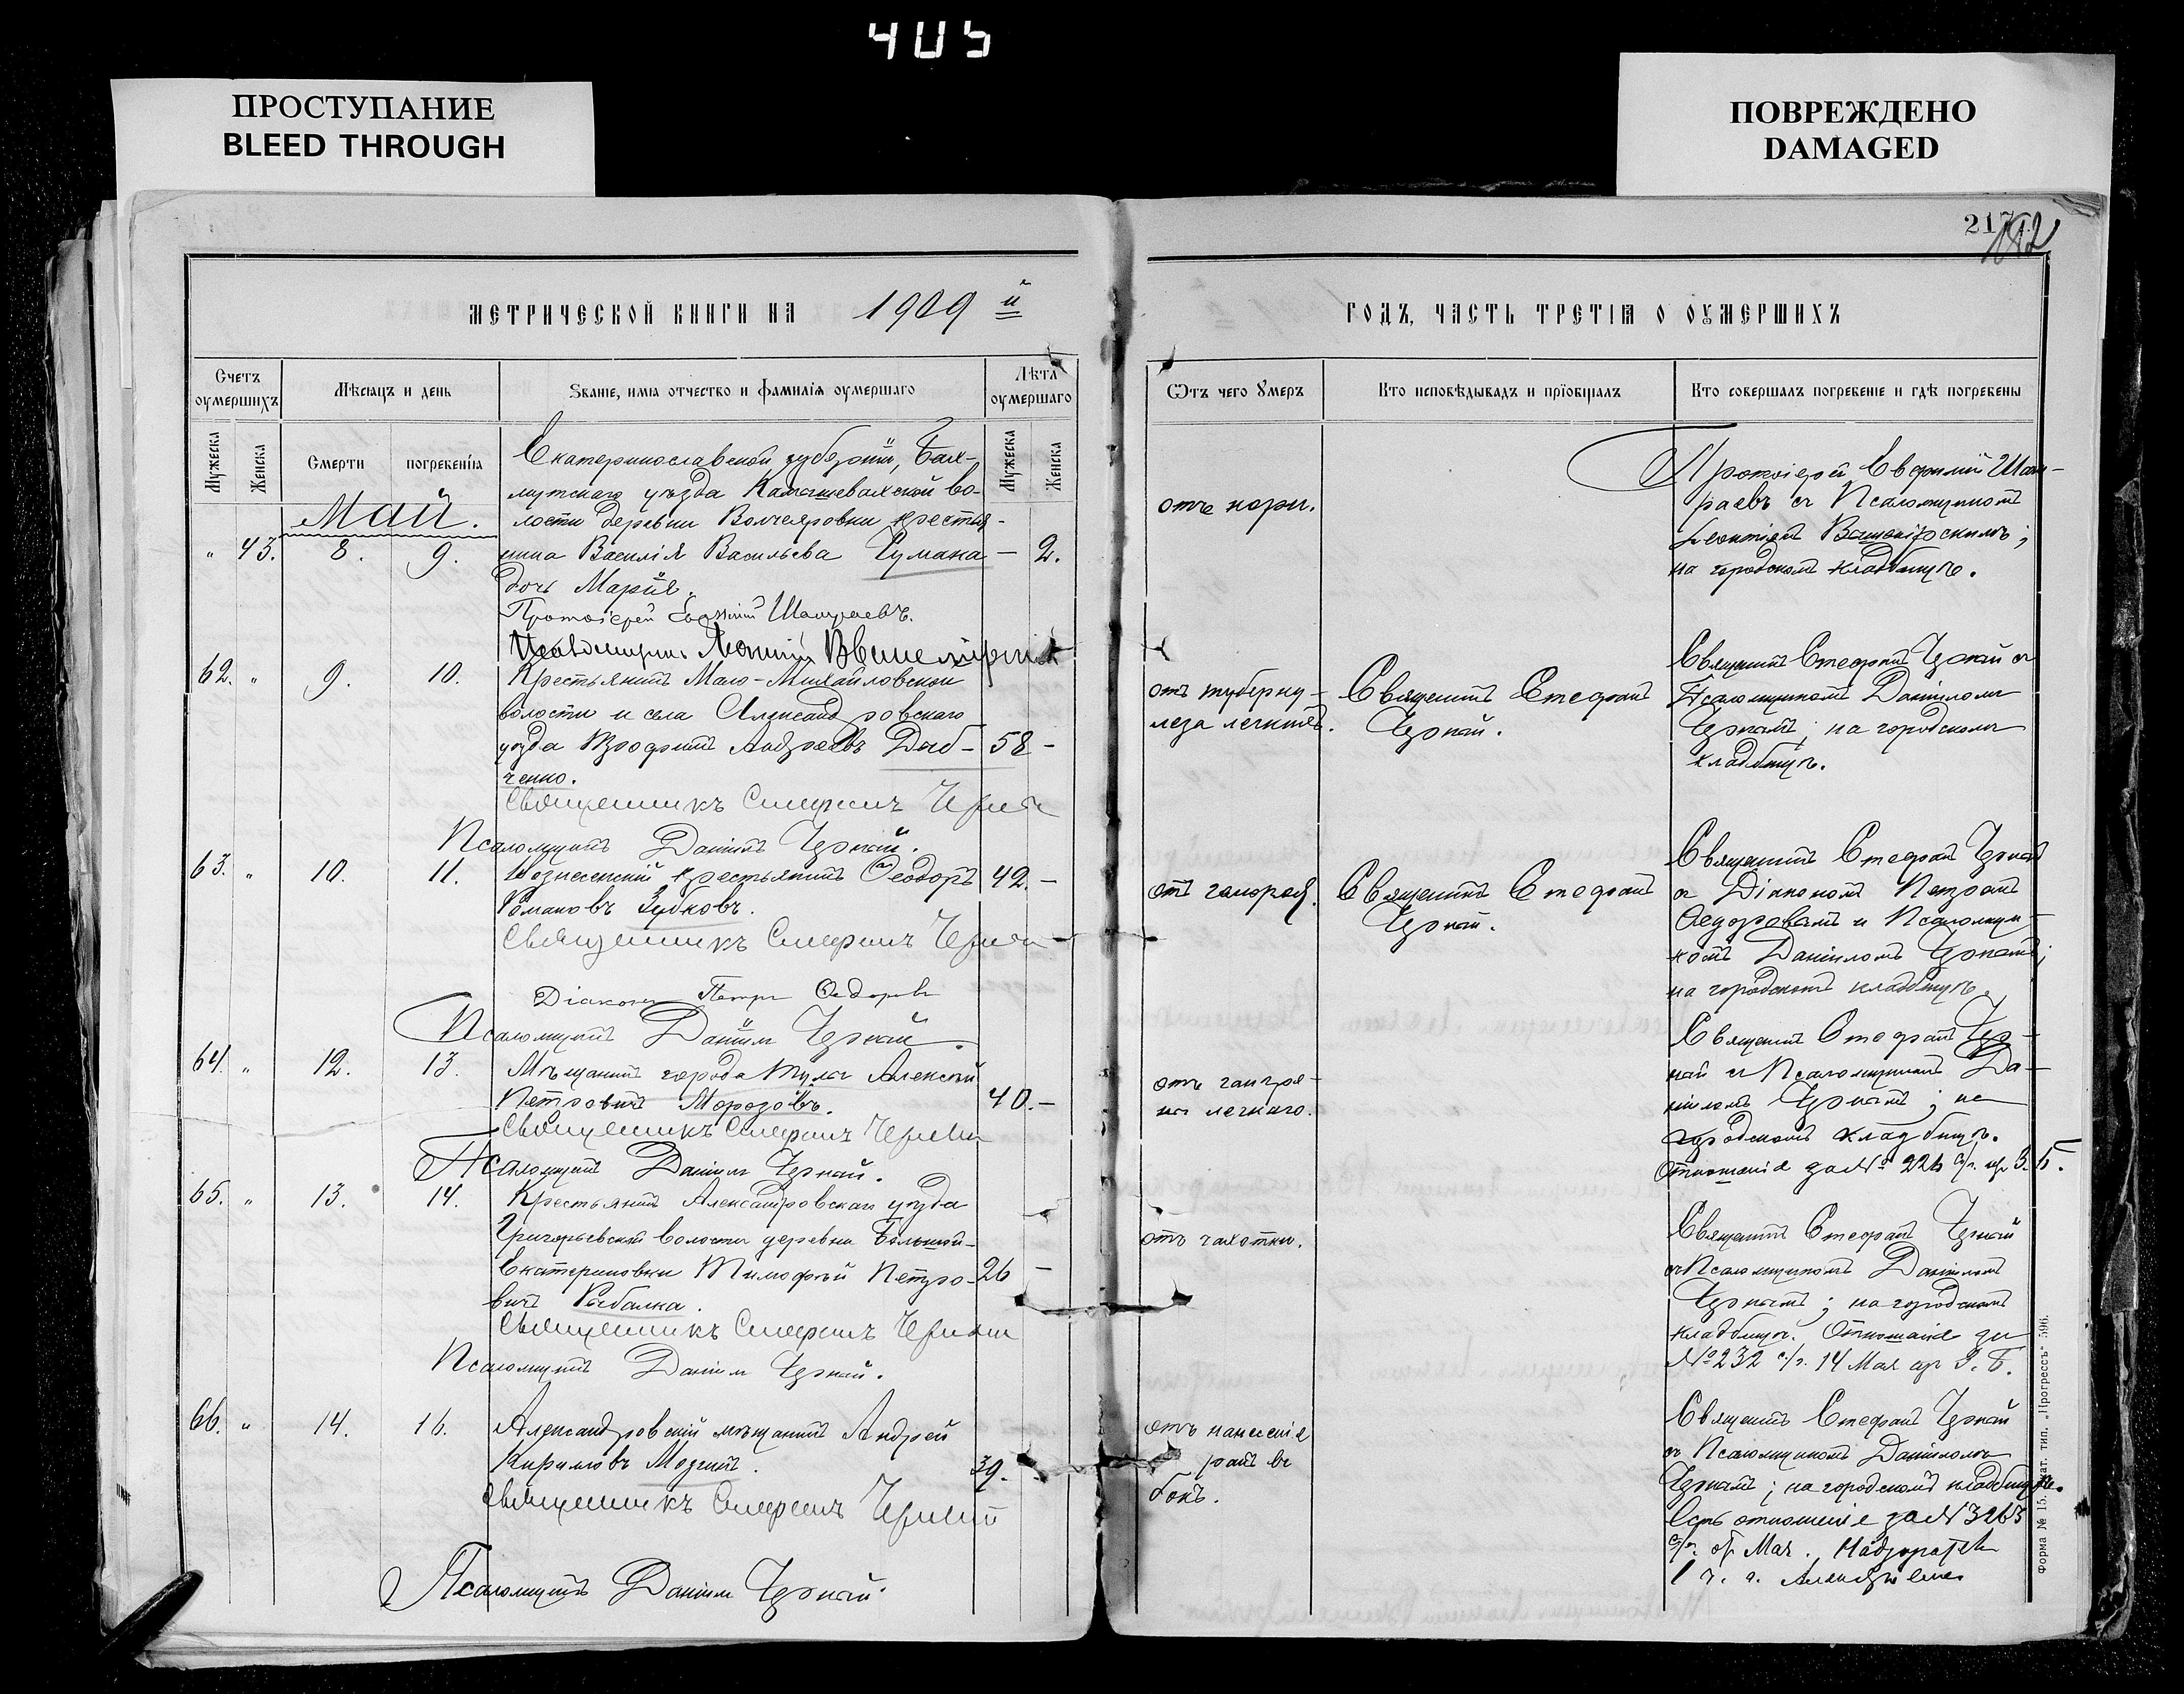 405
ПРОСТУПАНИЕ
BLEED THROUGH
ПОВРЕЖДЕНО
DAMAGED
217
МЕТРИЧЕСКОЙ КНИГИ НА 1909 й
ГОДЪ, ЧАСТЬ ТРЕТІЯ О ОУМЕРШИХЪ
Счетъ оумершихъ
Мѣсяцъ и день
Званіе, имя отчество и фамилія оумершаго
Лѣта оумершаго
Ѿтъ чего Умеръ
Кто исповѣдывалъ и прїобщалъ
Кто совершалъ погребеніе и гдѣ погребены
Мужеска
Женска
Смерти
погребенія
Мужеска
Женска
Май.
Екатеринославской губерніи, Бах-
мутскаго уѣзда Камышевахской во-
лости деревни Волчеяровки крестья-
" 43. 8. 9. нина Василія Васильева Чумака — 2.
дочь Марія.
Протоіерей Евфимій Шамраевъ.
Псаломщикъ Леонтій
отъ кори.
Протоіерей Евфимій Шам-
раевъ съ Псаломщикомъ
Леонтіемъ
на городскомъ кладбищѣ.
62. " 9. 10. Крестьянинъ Мало-Михайловской
волости и села Александровскаго
уѣзда Трофимъ Андреевъ Дыб- 58 -
ченко.
Священникъ Стефанъ Черный
Псаломщикъ Даніилъ Черный.
отъ туберку-
леза легкихъ.
Священникъ Стефанъ
Черный.
Священникъ Стефанъ Черный съ
Псаломщикомъ Даніиломъ
Чернымъ; на городскомъ
кладбищѣ.
63. " 10. 11. Вознесенскій крестьянинъ Ѳеодоръ 42. -
Романовъ Зубковъ.
Священникъ Стефанъ Черный
Діаконъ Петръ Ѳедоровъ
Псаломщикъ Даніилъ Черный.
отъ
Священникъ Стефанъ
Черный.
Священникъ Стефанъ Черный
съ Діакономъ Петромъ
Ѳедоровымъ и Псаломщи-
комъ Даніиломъ Чернымъ;
на городскомъ кладбищѣ.
64. " 12. 13. Мѣщанинъ города Тулы Алексѣй
Петровичъ Морозовъ. 40. -
Священникъ Стефанъ Черный
Псаломщикъ Даніилъ Черный.
отъ гангре-
ны легкаго.
Священникъ Стефанъ Чер-
ный съ Псаломщикомъ Да-
ніиломъ Чернымъ; на
городскомъ кладбищѣ.
Отношеніе за № 226 З. Б.
65. " 13. 14. Крестьянинъ Александровскаго уѣзда
Григорьевской волости деревни Большой-
Екатериновки Тимофѣй Петро- 26 -
вичъ Рыбалка.
Священникъ Стефанъ Черный
Псаломщикъ Даніилъ Черный.
отъ чахотки.
Священникъ Стефанъ Черный
съ Псаломщикомъ Даніиломъ
Чернымъ; на городскомъ
кладбищѣ. Отношеніе за
№ 232 14 Мая З. Б.
66. " 14. 16. Александровскій мѣщанинъ Андрей
Кириловъ Мозгинъ. 39.
Священникъ Стефанъ Черный
Псаломщикъ Даніилъ Черный.
отъ нанесенія
ранъ въ
бокъ.
Священникъ Стефанъ Черный
съ Псаломщикомъ Даніиломъ
Чернымъ; на городскомъ кладбищѣ.
Есть отношеніе за № 3263
Мая.
Форма № 15. кат. тип. „Прогрессъ" 596.